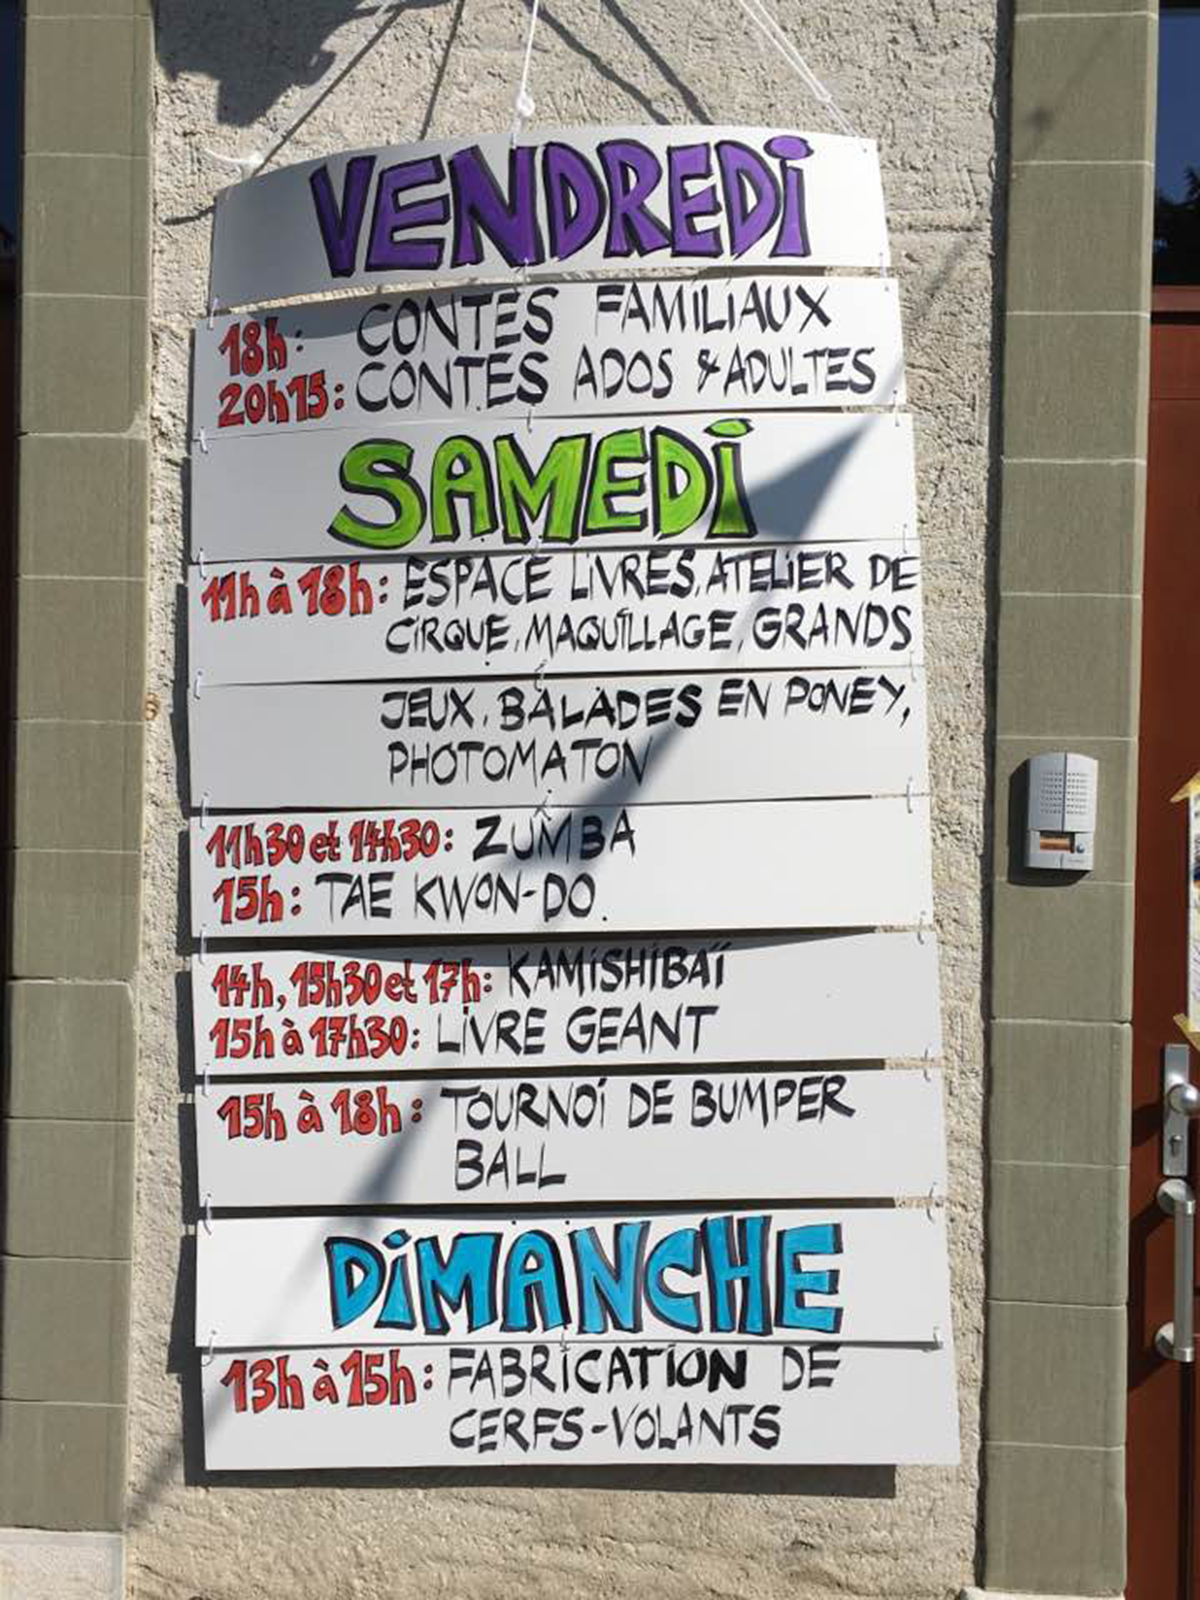 VENDREDI
18h: CONTES FAMILIAUX
20h15: CONTES ADOS & ADULTES
SAMEDI
11h à 18h: ESPACE LIVRES, ATELIER DE
CIRQUE, MAQUILLAGE, GRANDS
JEUX, BALADES EN PONEY,
PHOTOMATON
11h30 et 14h30: ZUMBA
15h: TAE KWON-DO.
14h, 15h30 et 17h: KAMISHIBAÏ
15h à 17h30: LIVRE GEANT
15h à 18h: TOURNOI DE BUMPER
BALL
DIMANCHE
13h à 15h: FABRICATION DE
CERFS-VOLANTS